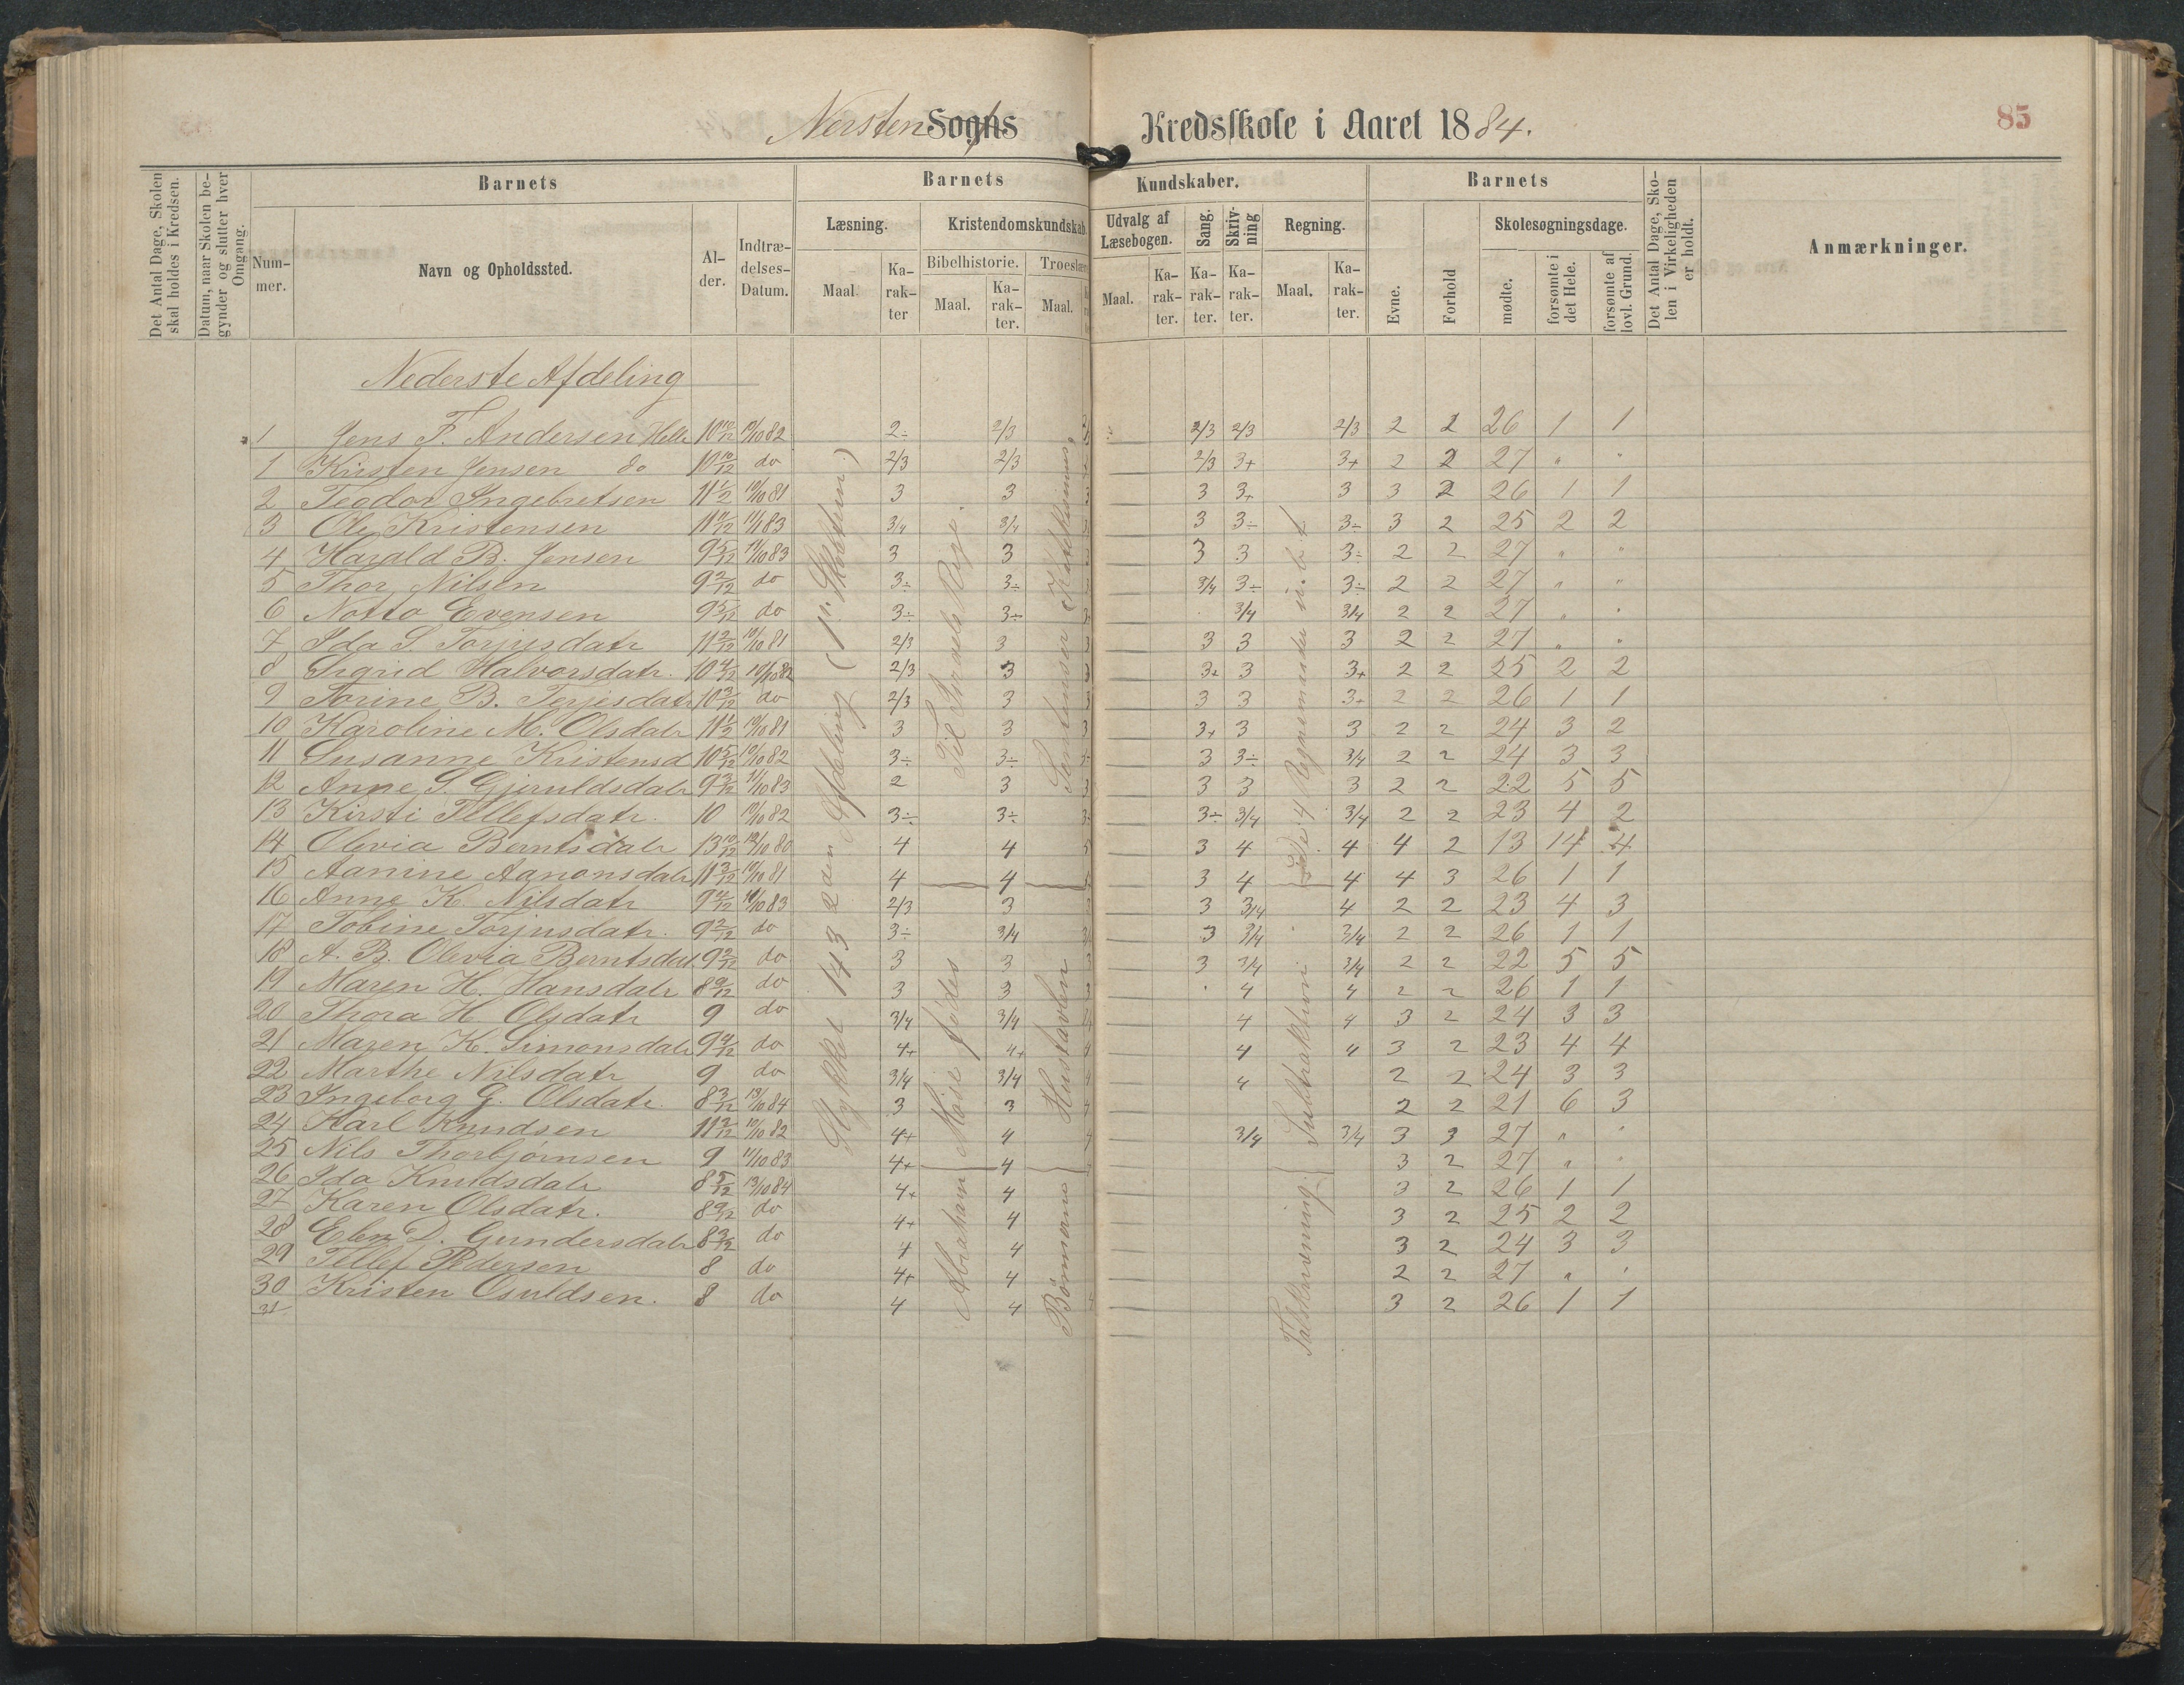 Nersten Sogns Kredsskole i Aaret 1884.
85
Det Antal Dage, Skolen skal holdes i Kredsen.
Datum, naar Skolen begynder og slutter hver Omgang.
Barnets
Nummer.
Navn og Opholdssted.
Alder.
Indtrædelses-Datum.
Barnets Kundskaber.
Læsning.
Maal.
Karakter
Kristendomskundskab.
Bibelhistorie.
Maal.
Karakter.
Troeslære
Maal.
Udvalg af Læsebogen.
Maal.
Karakter.
Sang.
Karakter.
Skrivning
Karakter.
Regning.
Maal.
Karakter.
Barnets
Evne.
Forhold
Skolesøgningsdage.
mødte.
forsømte i det Hele.
forsømte af lovl. Grund.
Det Antal Dage, Skolen i Virkeligheden er holdt.
Anmærkninger.
Nederste Afdeling
1 Jens F. Andersen Helle 10 10/12 10/10 82 2÷ 2/3 2/3 2/3 2/3 2 2 26 1 1
1 Kristen Jensen do 10 10/12 do 2/3 2/3 2/3 3+ 3+ 2 2 27 " "
2 Teodor Ingebretsen 11 1/2 10/10 81 3 3 3 3+ 3 3 2 26 1 1
3 Ole Kristensen 11 11/12 11/1 83 3/4 3/4 3 3÷ 3÷ 3 2 25 2 2
4 Harald B. Jensen 9 5/12 11/10 83 3 3 3 3 3÷ 2 2 27 " "
5 Thor Nilsen 9 2/12 do 3÷ 3÷ 3/4 3÷ 3÷ 2 2 27 " "
6 Notto Evensen 9 5/12 do 3÷ 3÷ 3/4 3/4 2 2 27 " "
7 Ida S. Torjusdatr 11 2/12 10/10 81 2/3 3 3 3 3 2 2 27 " "
8 Sigrid Halvorsdatr. 10 4/12 10/10 82 2/3 3 3+ 3 3+ 2 2 25 2 2
9 Torine B. Terjesdatr 10 3/12 do 2/3 3 3 3 3+ 2 2 26 1 1
10 Karoline M. Olsdatr 11 1/2 10/10 81 3 3 3+ 3 3 2 2 24 3 2
11 Susanne Kristensd 10 5/12 10/10 82 3÷ 3÷ 3 3÷ 3/4 2 2 24 3 3
12 Anne S. Gjeruldsdatr 9 3/12 11/10 83 2 3 3 3 3 2 2 22 5 5
13 Kirsti Tellefsdatr. 10 10/10 82 3÷ 3÷ 3÷ 3/4 3/4 2 2 23 4 2
14 Olevia Berntsdatr 13 10/12 12/10 80 4 4 3 4 4 4 2 13 14 4
15 Aanine Aanonsdatr 11 3/12 10/10 81 4 4 3 4 4 4 3 26 1 1
16 Anne K. Nilsdatr 9 4/12 11/10 83 2/3 3 3 3/4 4 2 2 23 4 3
17 Tobine Torjusdatr. 9 2/12 do 3÷ 3/4 3 3/4 3/4 2 2 26 1 1
18 A. B. Olevia Berntsdat. 9 2/12 do 3 3 3 3/4 3/4 2 2 22 5 5
19 Maren H. Hansdatr 8 9/12 do 3 3 4 4 2 2 26 1 1
20 Thora H. Olsdatr 9 do 3/4 3/4 4 4 3 2 24 3 3
21 Maren K. Simonsdatr 9 9/12 do 4+ 4+ 4 4 3 2 23 4 4
22 Marthe Nilsdatr 9 do 3/4 3/4 4 2 2 24 3 3
23 Ingeborg G. Olsdatr. 8 3/12 13/10 84 3 3 2 2 21 6 3
24 Karl Knudsen 11 2/12 10/10 82 4+ 4 3/4 3/4 3 3 27 " "
25 Nils Thorbjørnsen 9 11/10 83 4+ 4 3 2 27 " "
26 Ida Knudsdatr 8 5/12 13/10 84 4+ 4 3 2 26 1 1
27 Karen Olsdatr. 8 9/12 do 4+ 4 3 2 25 2 2
28 Elen D. Gundersdatr 8 3/12 do 4 4 3 2 24 3 3
29 Tellef Pedersen 8 do 4+ 4 2 2 27 " "
30 Kristen Osuldsen. 8 do 4 4 3 2 26 1 1
31
Stykket 143 2den Afdeling
Til Israels Rige.
Mose fødes
Abraham
Sentenser Katekismus
Hustavlen
Bønnerne
4 Regnemaader
Subtraktion
Talskrivning